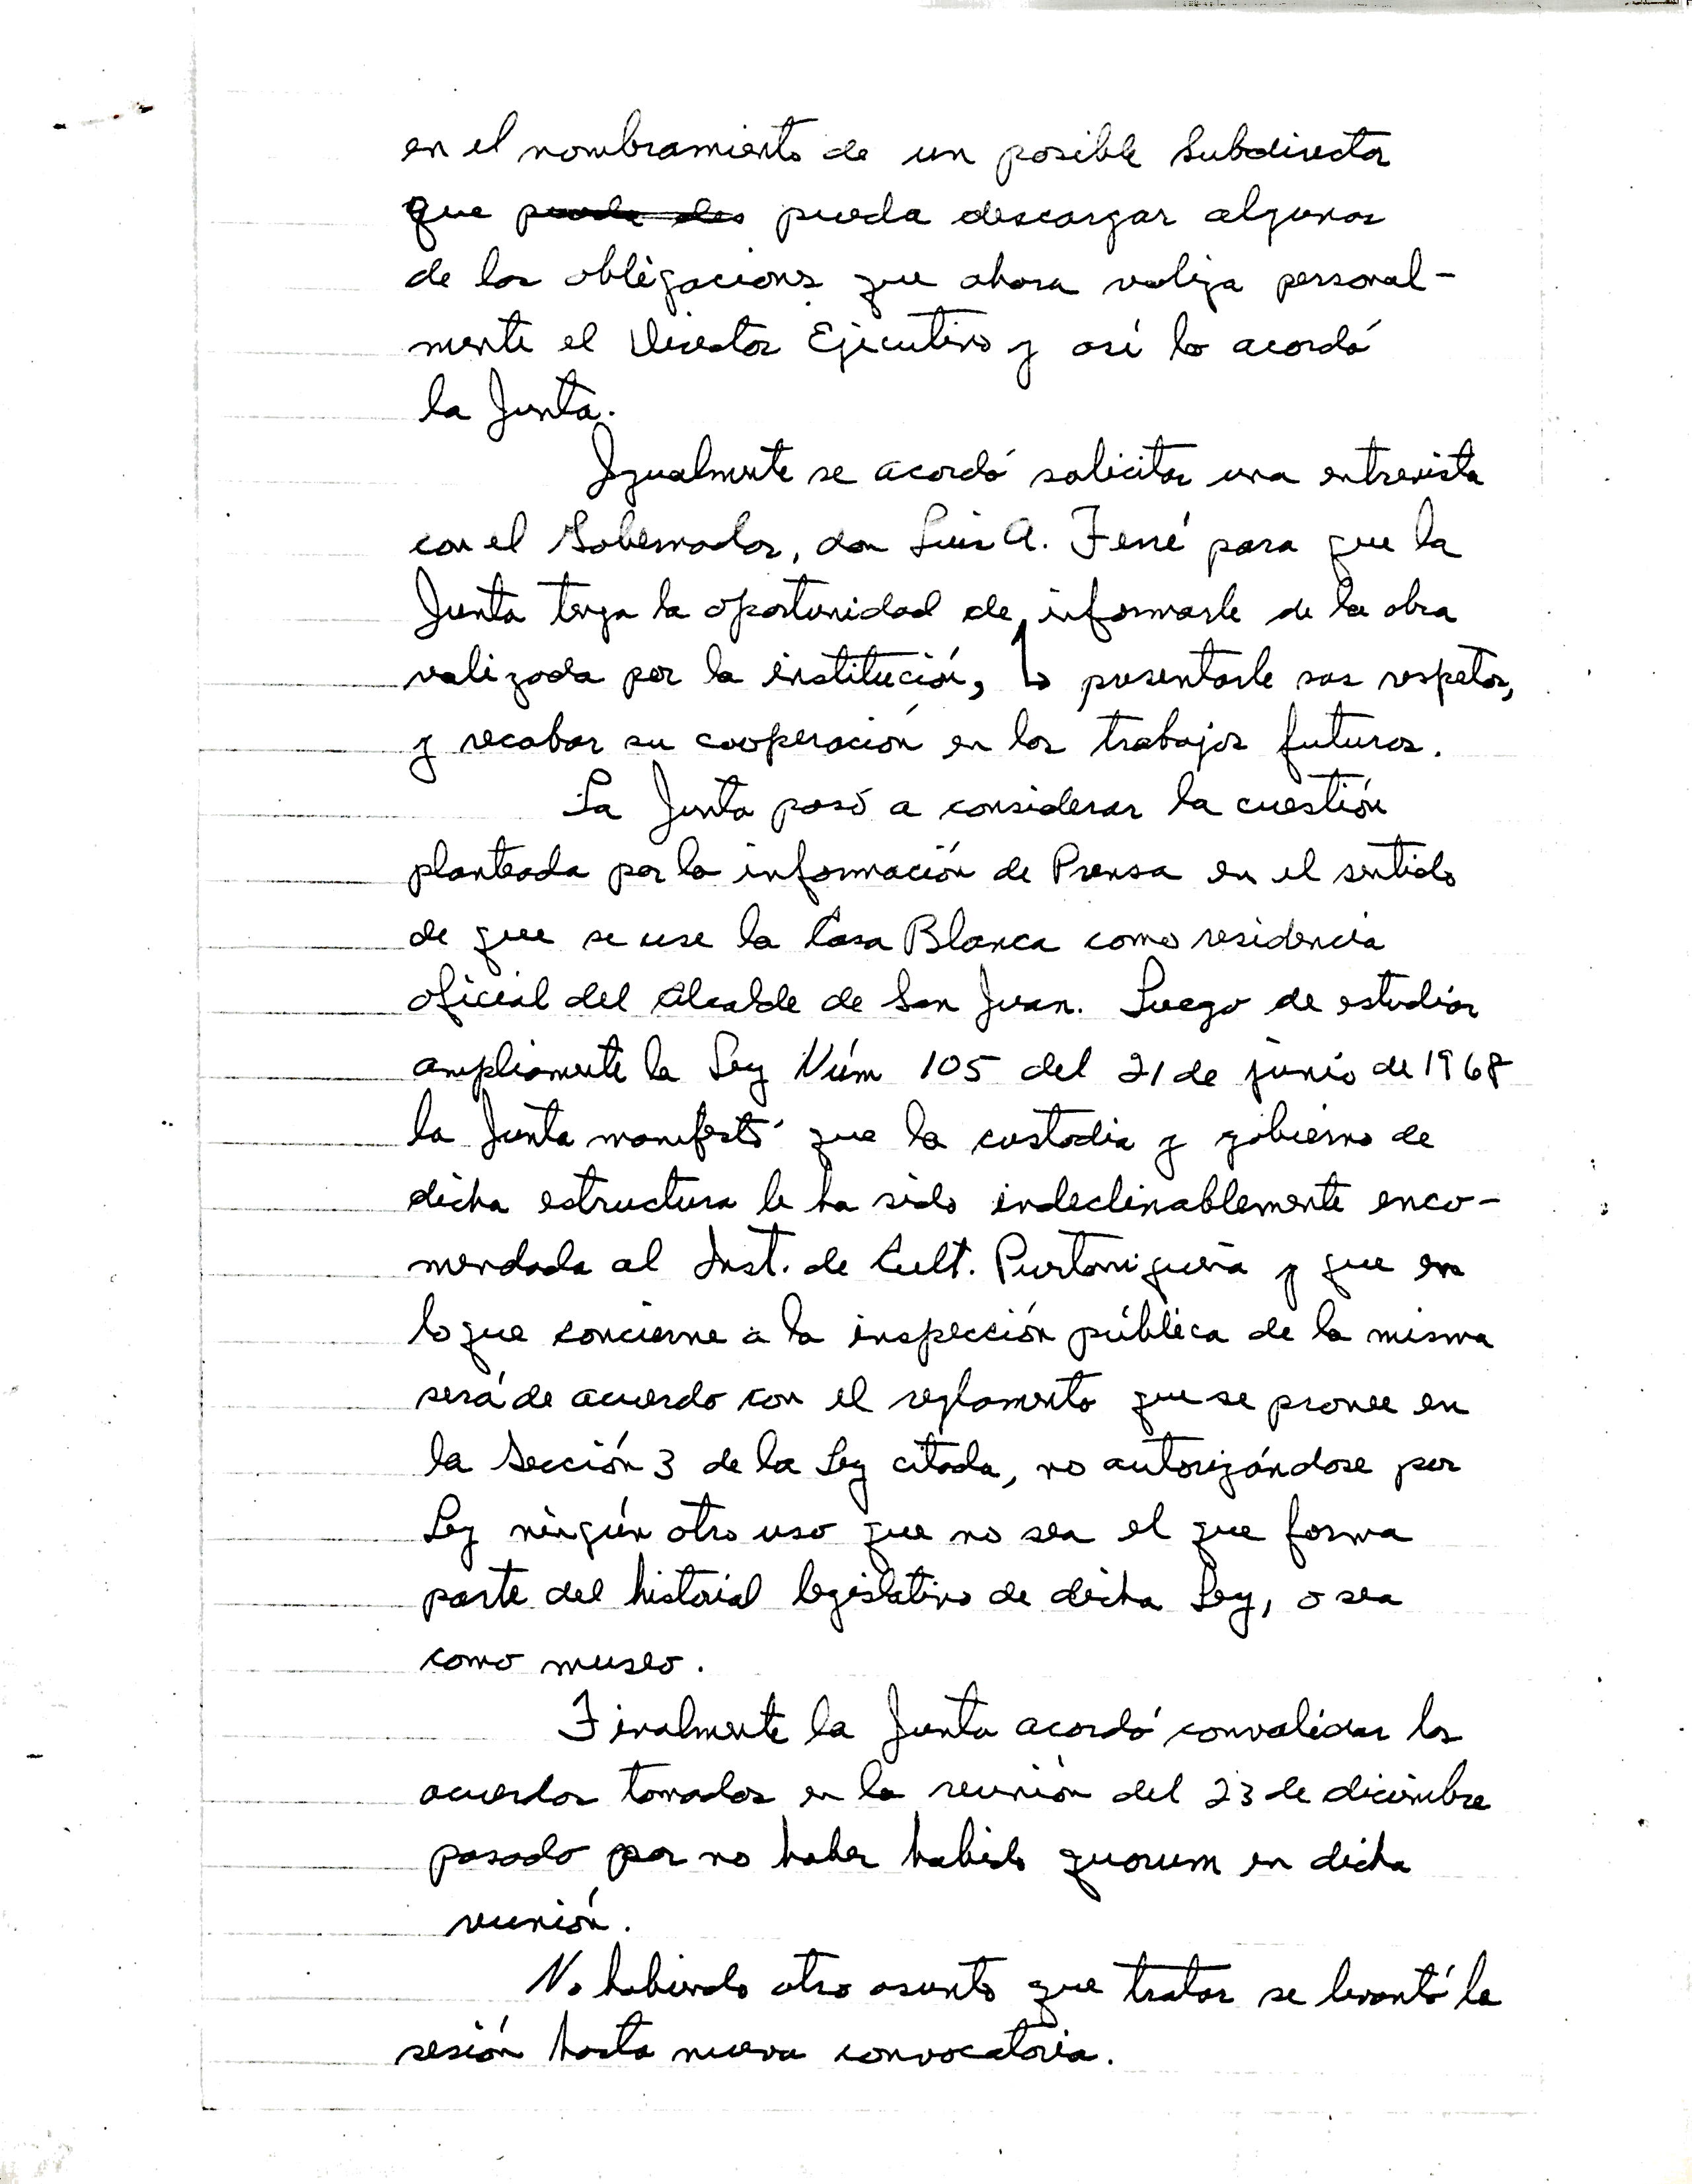 en el nombramiento de un posible Subdirector
que puede des pueda descargar algunas
de las obligaciones que ahora realiza personal-
mente el Director Ejecutivo y así lo acordó
la Junta.
Igualmente se acordó solicitar una entrevista
con el Gobernador, don Luis A. Ferré para que la
Junta tenga la oportunidad de informarle de la obra
realizada por la institución, presentarle sus respetos,
y recabar su cooperación en los trabajos futuros.
La Junta pasó a considerar la cuestión
planteada por la información de Prensa en el sentido
de que se use la Casa Blanca como residencia
oficial del Alcalde de San Juan. Luego de estudiar
ampliamente la Ley Núm 105 del 21 de junio de 1968
la Junta manifestó que la custodia y gobierno de
dicha estructura le ha sido indeclinablemente enco-
mendada al Inst. de Cult. Puertorriqueña y que en
lo que concierne a la inspección pública de la misma
será de acuerdo con el reglamento que se provee en
la Sección 3 de la Ley citada, no autorizándose por
Ley ningún otro uso que no sea el que forma
parte del historial legislativo de dicha Ley, o sea
como museo.
Finalmente la Junta acordó convalidar los
acuerdos tomados en la reunión del 23 de diciembre
pasado por no haber habido quorum en dicha
reunión.
No habiendo otro asunto que tratar se levantó la
sesión hasta nueva convocatoria.